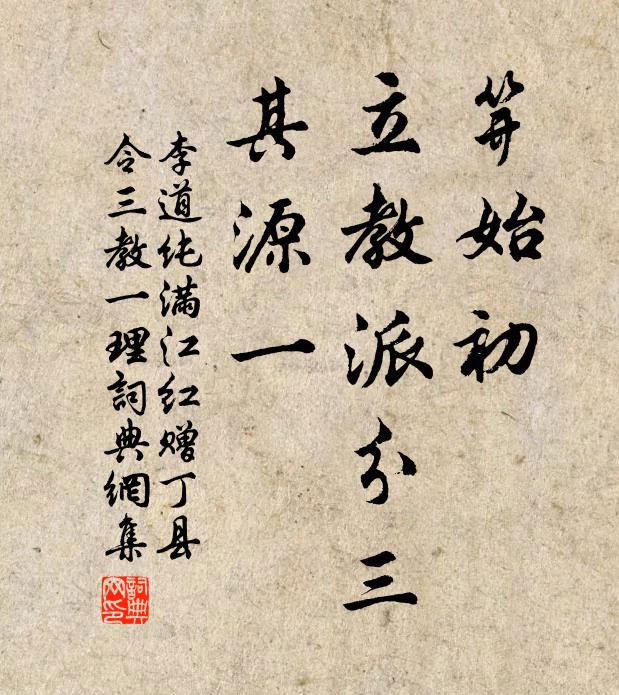 筭始初
立教派分三
其源一
李道纯满江红赠丁县
令三教一理詞典網集